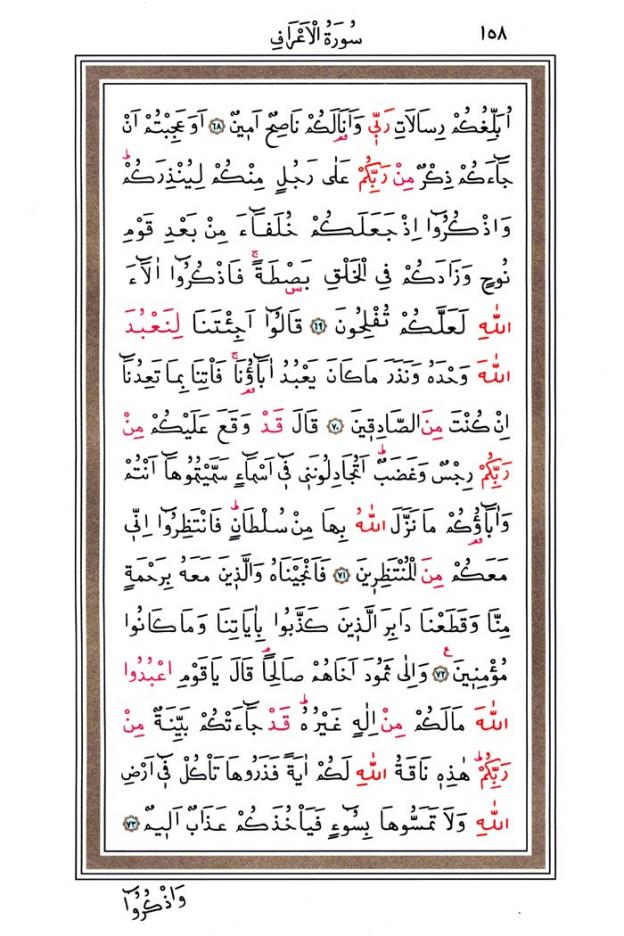 ١٥٨
سُورَةُ الْاَعْرَافِ
اُبَلِّغُكُمْ رِسَالَاتِ رَبّٖي وَاَنَا۬لَكُمْ نَاصِحٌ اَمٖينٌ ﴿٦٨﴾ اَوَعَجِبْتُمْ اَنْ
جَٓاءَكُمْ ذِكْرٌ مِنْ رَبِّكُمْ عَلٰى رَجُلٍ مِنْكُمْ لِيُنْذِرَكُمْۜ
وَاذْكُرُٓوا اِذْ جَعَلَكُمْ خُلَفَٓاءَ مِنْ بَعْدِ قَوْمِ
نُوحٍ وَزَادَكُمْ فِي الْخَلْقِ بَصْۣطَةًۚ فَاذْكُرُٓوا اٰلَٓاءَ
اللّٰهِ لَعَلَّكُمْ تُفْلِحُونَ ﴿٦٩﴾ قَالُٓوا اَجِئْتَنَا لِنَعْبُدَ
اللّٰهَ وَحْدَهُ وَنَذَرَ مَا كَانَ يَعْبُدُ اٰبَٓاؤُ۬نَاۚ فَأْتِنَا بِمَا تَعِدُنَٓا
اِنْ كُنْتَ مِنَ الصَّادِقٖينَ ﴿٧٠﴾ قَالَ قَدْ وَقَعَ عَلَيْكُمْ مِنْ
رَبِّكُمْ رِجْسٌ وَغَضَبٌۜ اَتُجَادِلُونَنٖي فٖٓي اَسْمَٓاءٍ سَمَّيْتُمُوهَٓا اَنْتُمْ
وَاٰبَٓاؤُ۬كُمْ مَا نَزَّلَ اللّٰهُ بِهَا مِنْ سُلْطَانٍۜ فَانْتَظِرُٓوا اِنّٖي
مَعَكُمْ مِنَ الْمُنْتَظِرٖينَ ﴿٧١﴾ فَاَنْجَيْنَاهُ وَالَّذٖينَ مَعَهُ بِرَحْمَةٍ
مِنَّا وَقَطَعْنَا دَابِرَ الَّذٖينَ كَذَّبُوا بِاٰيَاتِنَا وَمَا كَانُوا
مُؤْمِنٖينَ ﴿٧٢﴾ وَاِلٰى ثَمُودَ اَخَاهُمْ صَالِحاًۢ قَالَ يَا قَوْمِ اعْبُدُوا
اللّٰهَ مَا لَكُمْ مِنْ اِلٰهٍ غَيْرُهُۜ قَدْ جَٓاءَتْكُمْ بَيِّنَةٌ مِنْ
رَبِّكُمْۜ هٰذِهٖ نَاقَةُ اللّٰهِ لَكُمْ اٰيَةً فَذَرُوهَا تَأْكُلْ فٖٓي اَرْضِ
اللّٰهِ وَلَا تَمَسُّوهَا بِسُٓوءٍ فَيَأْخُذَكُمْ عَذَابٌ اَلٖيمٌ ﴿٧٣﴾
وَاذْكُرُٓوا